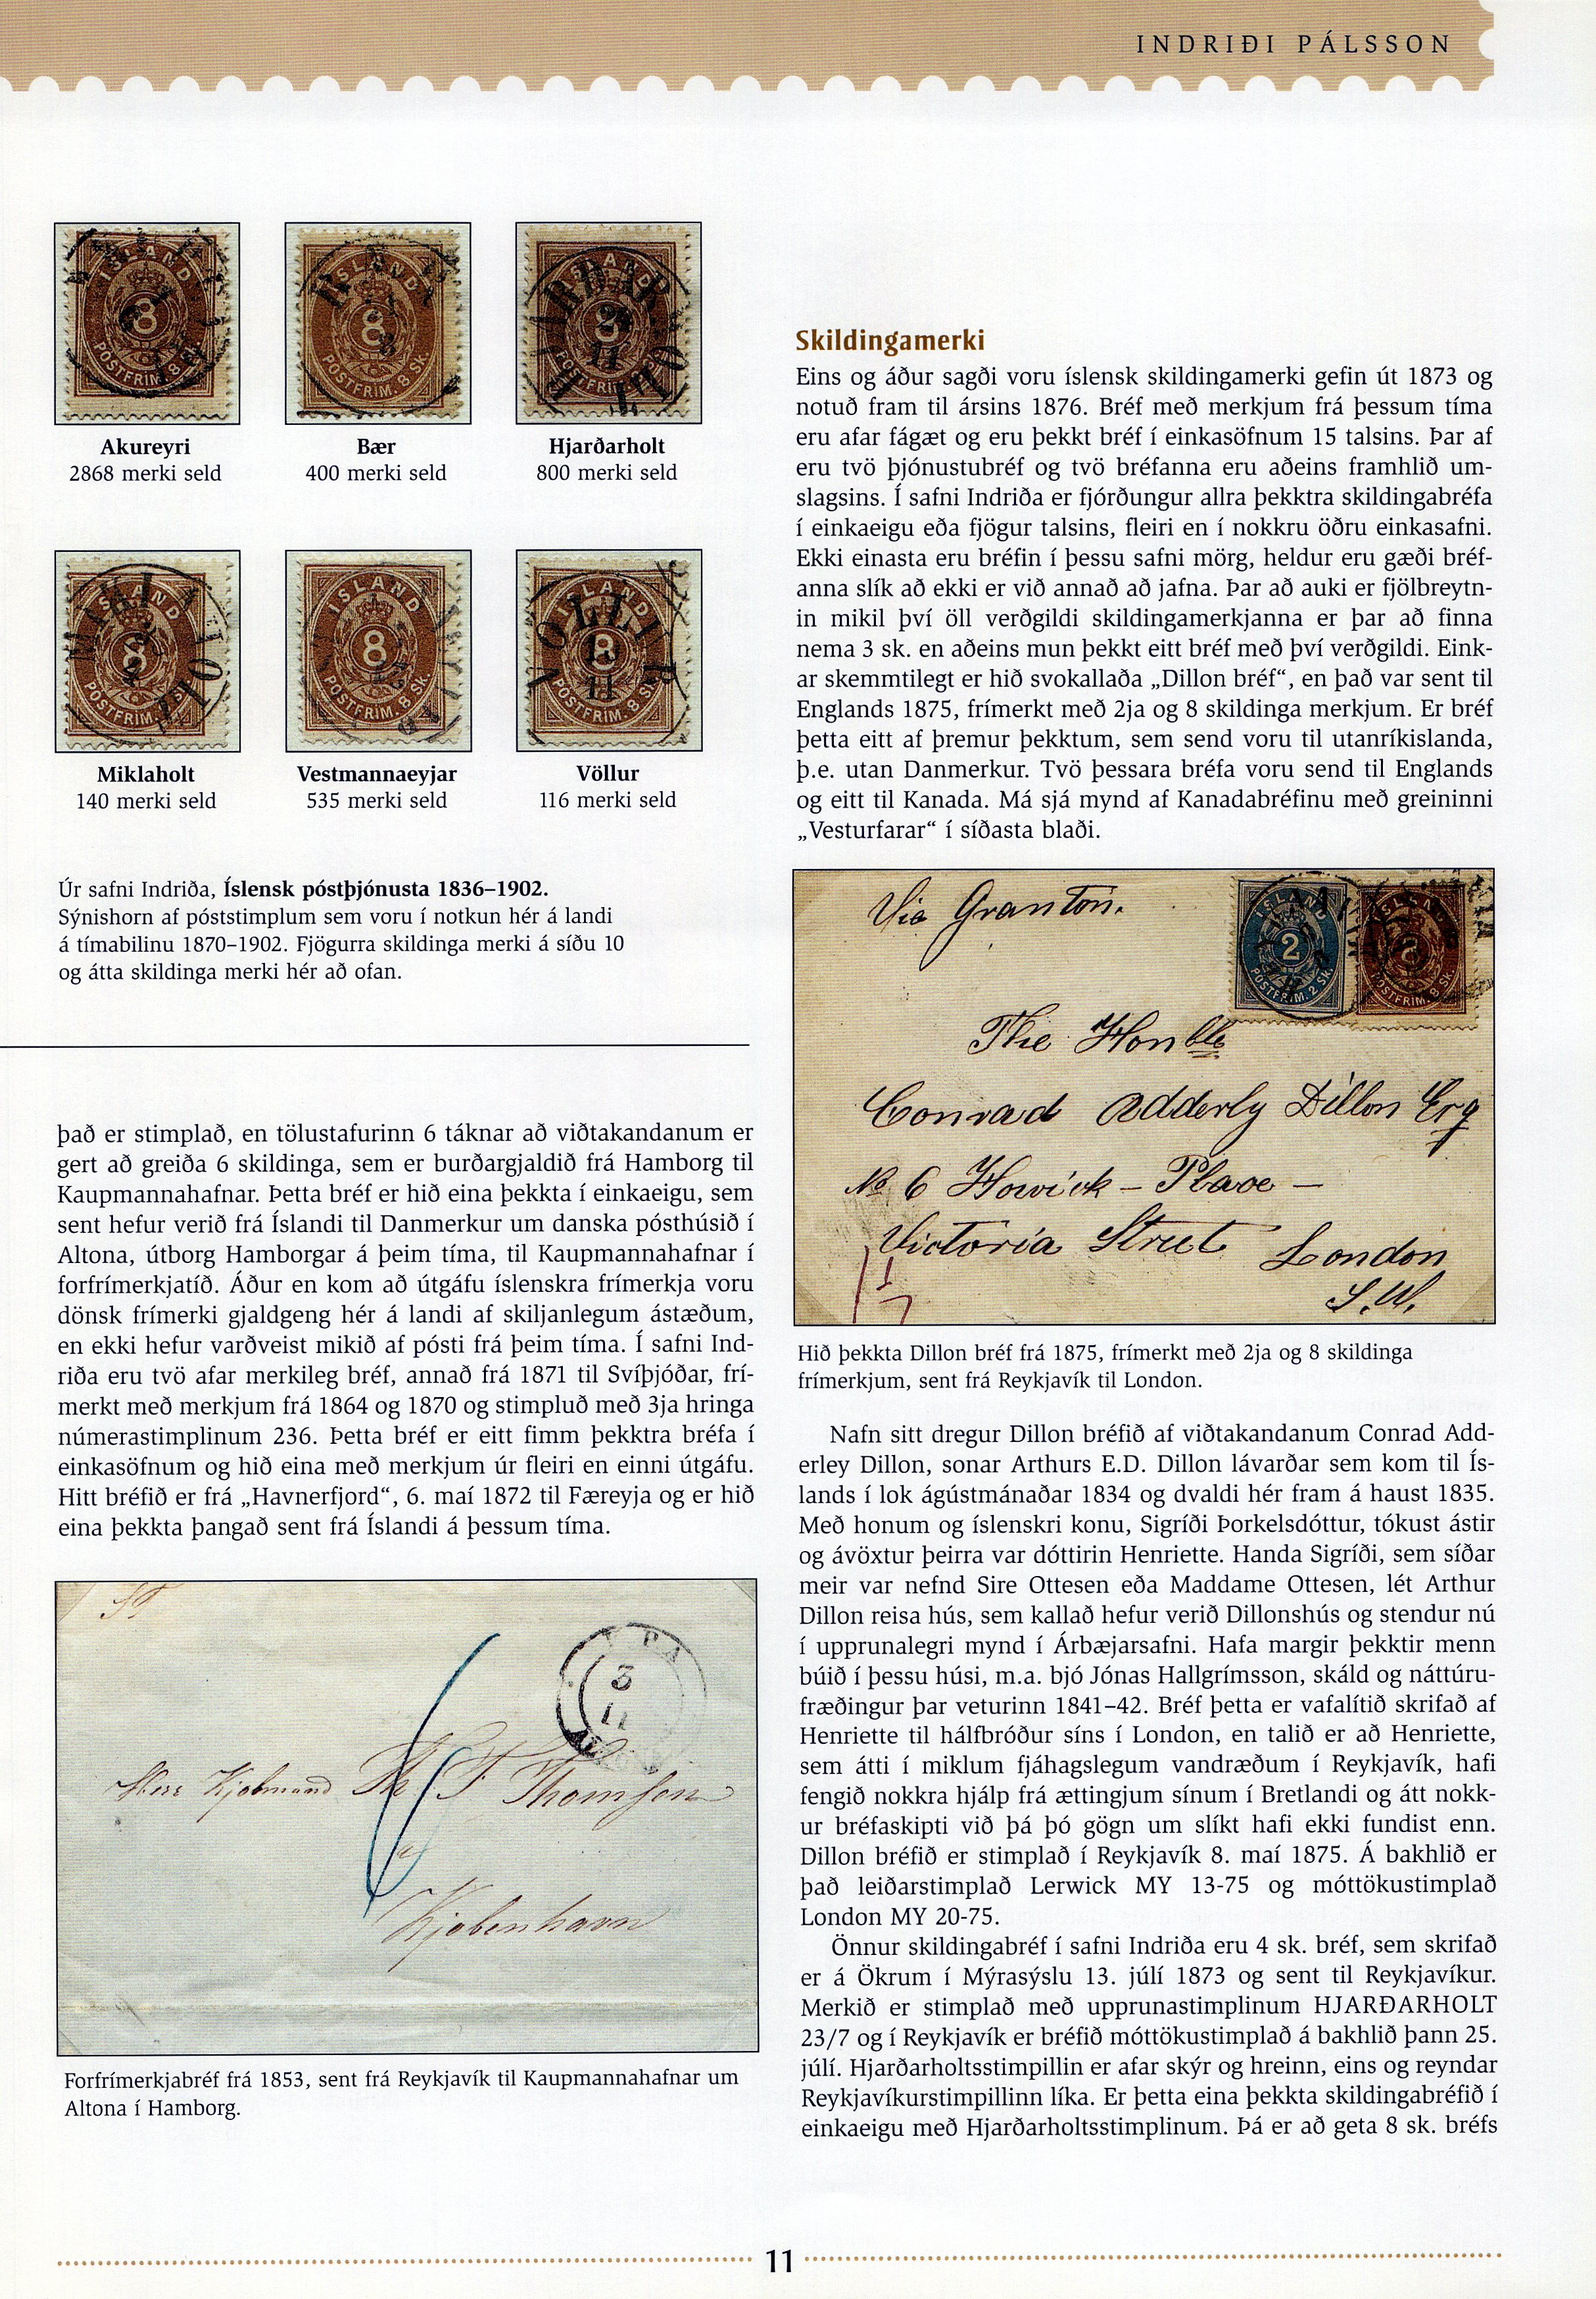 INDRIÐI PÁLSSON
Akureyri
2868 merki seld
Bær
400 merki seld
Hjarðarholt
800 merki seld
Miklaholt
140 merki seld
Vestmannaeyjar
535 merki seld
Völlur
116 merki seld
Úr safni Indriða, Íslensk póstþjónusta 1836–1902.
Sýnishorn af póststimplum sem voru í notkun hér á landi
á tímabilinu 1870–1902. Fjögurra skildinga merki á síðu 10
og átta skildinga merki hér að ofan.
það er stimplað, en tölustafurinn 6 táknar að viðtakandanum er
gert að greiða 6 skildinga, sem er burðargjaldið frá Hamborg til
Kaupmannahafnar. Þetta bréf er hið eina þekkta í einkaeigu, sem
sent hefur verið frá Íslandi til Danmerkur um danska pósthúsið í
Altona, útborg Hamborgar á þeim tíma, til Kaupmannahafnar í
forfrímerkjatíð. Áður en kom að útgáfu íslenskra frímerkja voru
dönsk frímerki gjaldgeng hér á landi af skiljanlegum ástæðum,
en ekki hefur varðveist mikið af pósti frá þeim tíma. Í safni Ind-
riða eru tvö afar merkileg bréf, annað frá 1871 til Svíþjóðar, frí-
merkt með merkjum frá 1864 og 1870 og stimpluð með 3ja hringa
númerastimplinum 236. Þetta bréf er eitt fimm þekktra bréfa í
einkasöfnum og hið eina með merkjum úr fleiri en einni útgáfu.
Hitt bréfið er frá „Havnerfjord“, 6. maí 1872 til Færeyja og er hið
eina þekkta þangað sent frá Íslandi á þessum tíma.
3
11
6
Herr Kjøbmand Th F Thomsen
Kjøbenhavn
Forfrímerkjabréf frá 1853, sent frá Reykjavík til Kaupmannahafnar um
Altona í Hamborg.
Skildingamerki
Eins og áður sagði voru íslensk skildingamerki gefin út 1873 og
notuð fram til ársins 1876. Bréf með merkjum frá þessum tíma
eru afar fágæt og eru þekkt bréf í einkasöfnum 15 talsins. Þar af
eru tvö þjónustubréf og tvö bréfanna eru aðeins framhlið um-
slagsins. Í safni Indriða er fjórðungur allra þekktra skildingabréfa
í einkaeigu eða fjögur talsins, fleiri en í nokkru öðru einkasafni.
Ekki einasta eru bréfin í þessu safni mörg, heldur eru gæði bréf-
anna slík að ekki er við annað að jafna. Þar að auki er fjölbreytn-
in mikil því öll verðgildi skildingamerkjanna er þar að finna
nema 3 sk. en aðeins mun þekkt eitt bréf með því verðgildi. Eink-
ar skemmtilegt er hið svokallaða „Dillon bréf“, en það var sent til
Englands 1875, frímerkt með 2ja og 8 skildinga merkjum. Er bréf
þetta eitt af þremur þekktum, sem send voru til utanríkislanda,
þ.e. utan Danmerkur. Tvö þessara bréfa voru send til Englands
og eitt til Kanada. Má sjá mynd af Kanadabréfinu með greininni
„Vesturfarar“ í síðasta blaði.
Via Granton.
ISLAND
2
POSTFRIM. 2 SK.
ISLAND
8
POSTFRIM. 8 SK.
The Honble
Conrad Adderly Dillon Esq
No 6 Howick – Place –
Victoria Street London
S.W.
Hið þekkta Dillon bréf frá 1875, frímerkt með 2ja og 8 skildinga
frímerkjum, sent frá Reykjavík til London.
Nafn sitt dregur Dillon bréfið af viðtakandanum Conrad Add-
erley Dillon, sonar Arthurs E.D. Dillon lávarðar sem kom til Ís-
lands í lok ágústmánaðar 1834 og dvaldi hér fram á haust 1835.
Með honum og íslenskri konu, Sigríði Þorkelsdóttur, tókust ástir
og ávöxtur þeirra var dóttirin Henriette. Handa Sigríði, sem síðar
meir var nefnd Sire Ottesen eða Maddame Ottesen, lét Arthur
Dillon reisa hús, sem kallað hefur verið Dillonshús og stendur nú
í upprunalegri mynd í Árbæjarsafni. Hafa margir þekktir menn
búið í þessu húsi, m.a. bjó Jónas Hallgrímsson, skáld og náttúru-
fræðingur þar veturinn 1841–42. Bréf þetta er vafalítið skrifað af
Henriette til hálfbróður síns í London, en talið er að Henriette,
sem átti í miklum fjáhagslegum vandræðum í Reykjavík, hafi
fengið nokkra hjálp frá ættingjum sínum í Bretlandi og átt nokk-
ur bréfaskipti við þá þó gögn um slíkt hafi ekki fundist enn.
Dillon bréfið er stimplað í Reykjavík 8. maí 1875. Á bakhlið er
það leiðarstimplað Lerwick MY 13-75 og móttökustimplað
London MY 20-75.
Önnur skildingabréf í safni Indriða eru 4 sk. bréf, sem skrifað
er á Ökrum í Mýrasýslu 13. júlí 1873 og sent til Reykjavíkur.
Merkið er stimplað með upprunastimplinum HJARÐARHOLT
23/7 og í Reykjavík er bréfið móttökustimplað á bakhlið þann 25.
júlí. Hjarðarholtsstimpillin er afar skýr og hreinn, eins og reyndar
Reykjavíkurstimpillinn líka. Er þetta eina þekkta skildingabréfið í
einkaeigu með Hjarðarholtsstimplinum. Þá er að geta 8 sk. bréfs
11